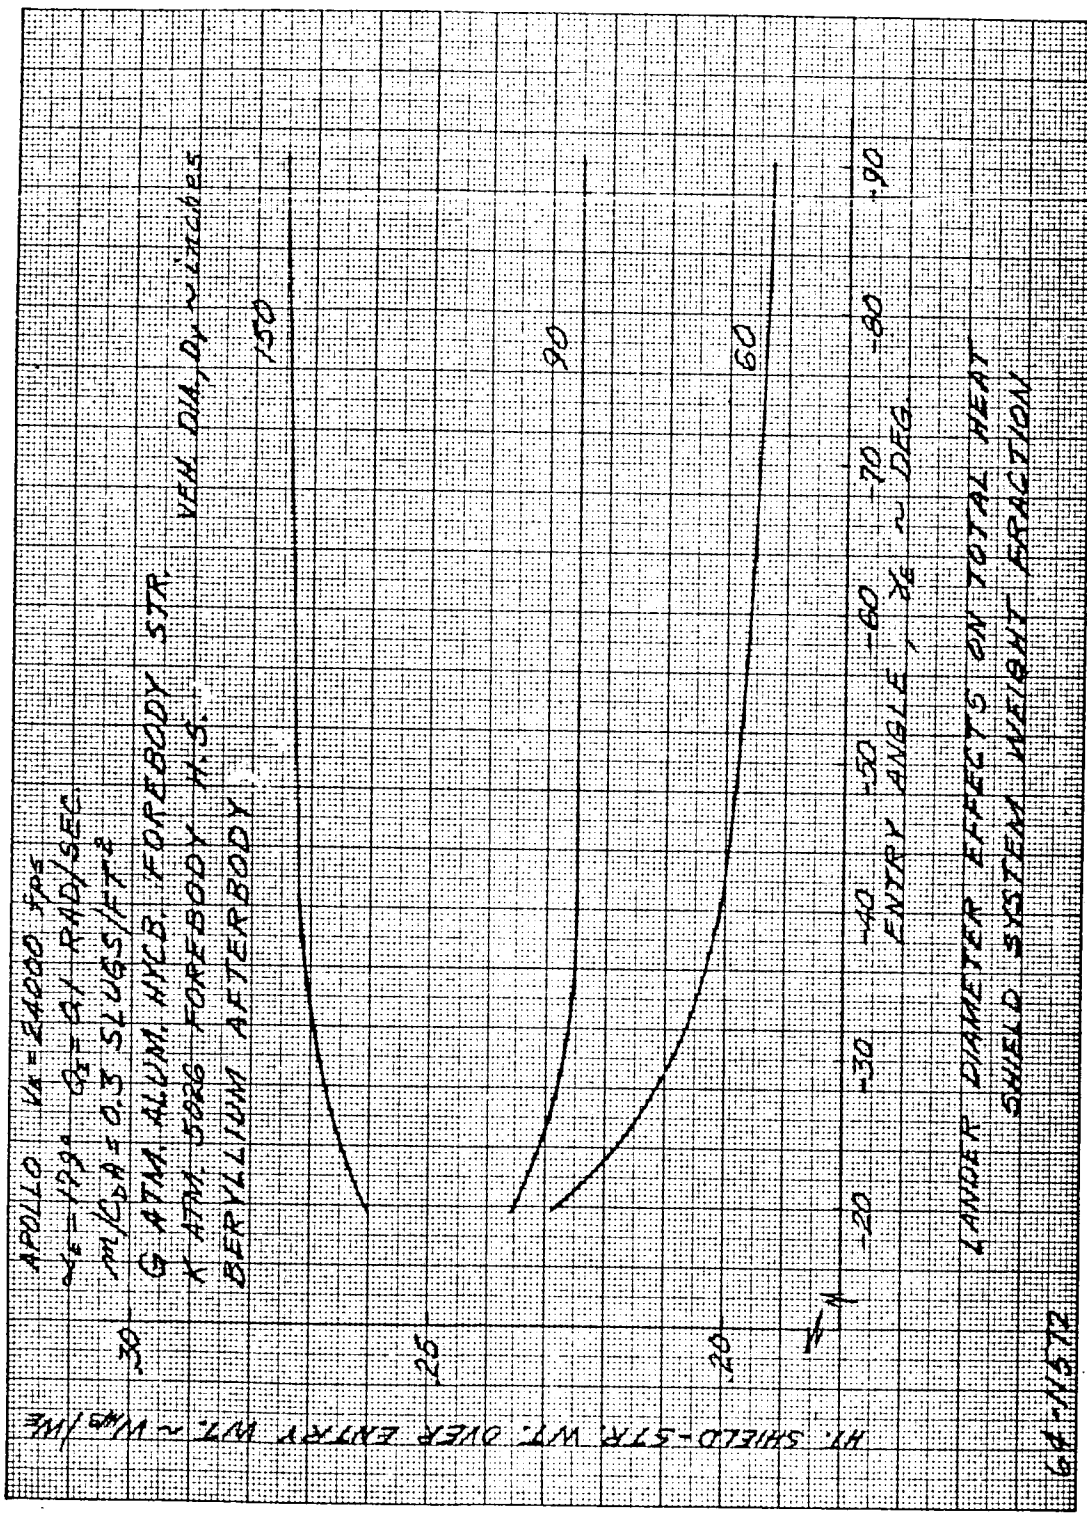 APOLLO VE = 24000 fps
αE = 179° QI = 0.1 RAD/SEC.
M/CDA = 0.3 SLUGS/FT²
G ATM. ALUM. HYCB. FOREBODY STR.
K ATM. 5026 FOREBODY H.S.
BERYLLIUM AFTERBODY
VEH. DIA, DV ~ inches
150
90
60
.30
.25
.20
HT. SHIELD-STR. WT. OVER ENTRY WT. ~ WHS/WE
-20 -30 -40 -50 -60 -70 -80 -90
ENTRY ANGLE, γE ~ DEG.
LANDER DIAMETER EFFECTS ON TOTAL HEAT
SHIELD SYSTEM WEIGHT FRACTION
64-11572